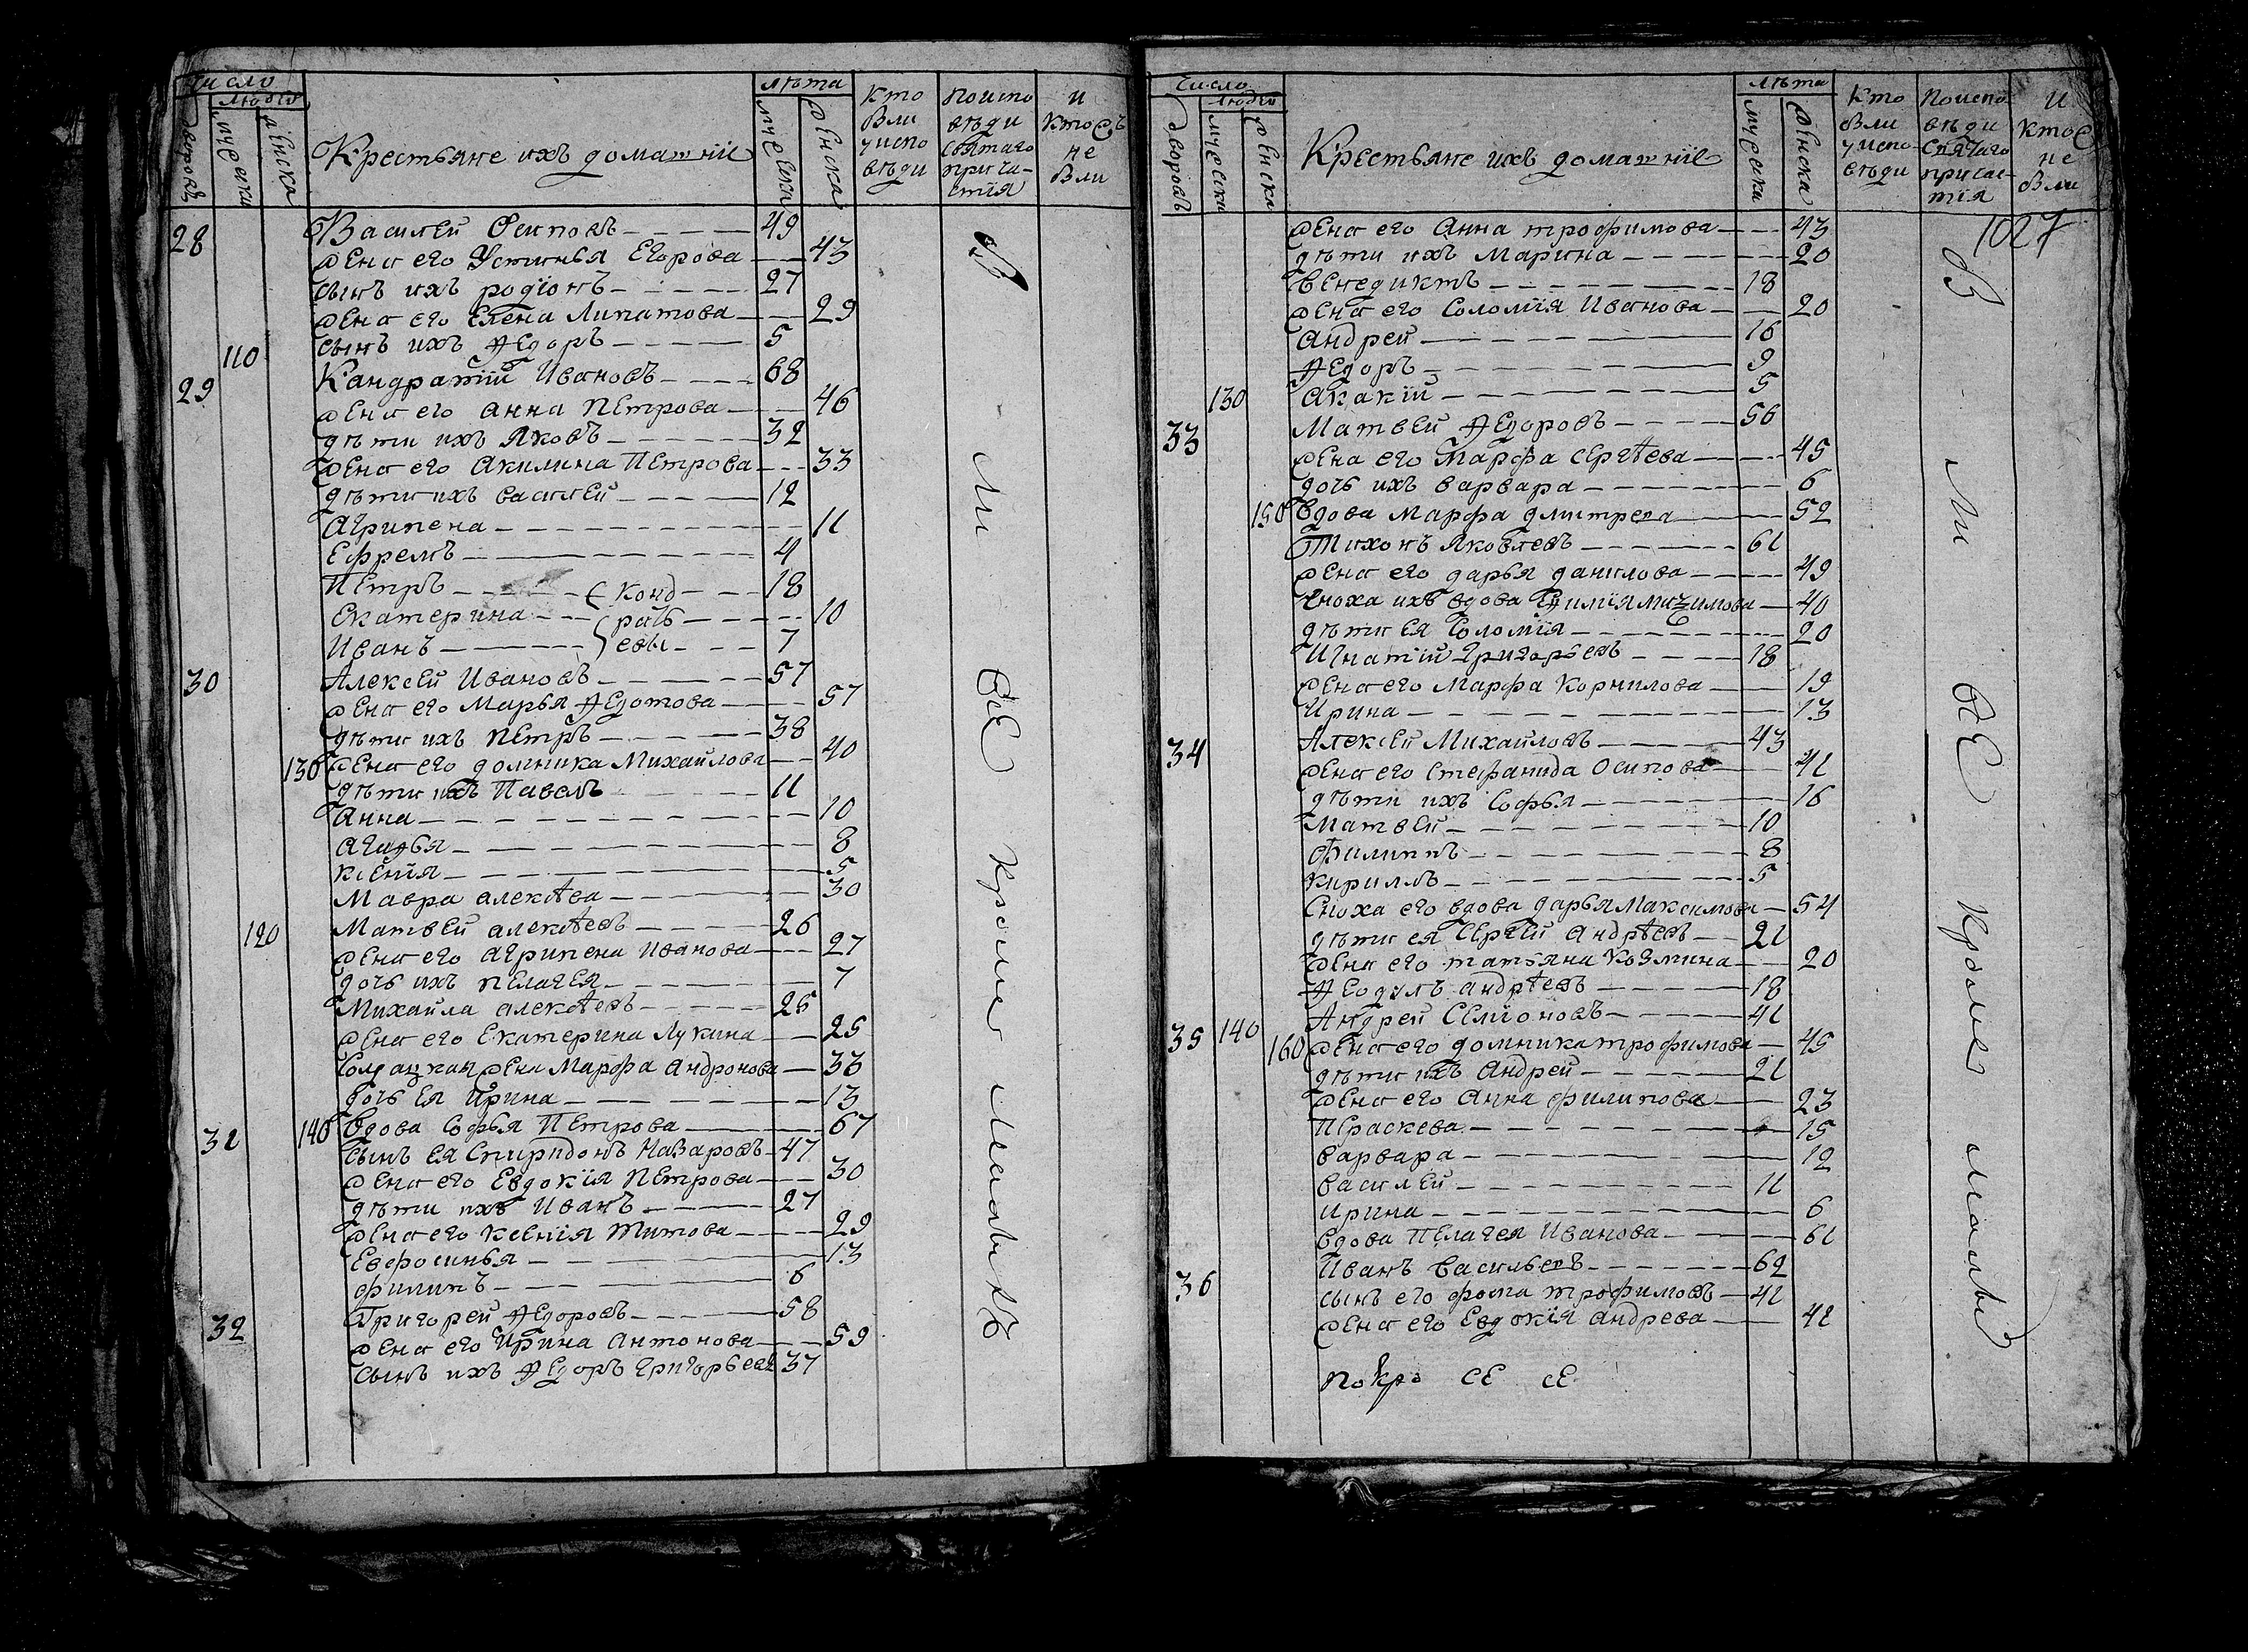 Число
людей
дворовъ
мужеска
женска
Крестьяне ихъ домашнiе
лѣта
мужеска
женска
Кто
были
у испо
вѣди
Поиспо
вѣди
святаго
прича-
стiя
И
кто съ
не
были
28 Василей Осиповъ 49
жена его Устинья Егорова 43
сынъ ихъ родiонъ 27
жена его Елена Липатова 29
110 сынъ ихъ Ѳедоръ 5
29 Кандратiй Ивановъ 68
жена его анна Петрова 46
дѣти ихъ Яковъ 32
жена его Акилина Петрова 33
дѣти ихъ василей 12
Агрипена 11
Ефремъ 4
Петръ конд 18
Екатерина рать 10
Иванъ евы 7
30 Алексей Ивановъ 57
жена его Марья Ѳедотова 57
дѣти ихъ Петръ 38
130 жена его домника Михайлова 40
дѣти ихъ Павелъ 11
Анна 10
агафья 8
ксенiя 5
Мавра алексѣва 30
120 Матвей алексѣевъ 26
жена его агрипена Иванова 27
дочь ихъ пелагея 7
Михайла алексѣевъ 25
жена его Екатерина Лукина 25
Солдацкая жена Марфа Андронова 33
дочь ея Ирина 13
31 140 вдова Софья Петрова 67
сынъ ея Спиридонъ Назаровъ 47
жена его Евдокiя Петрова 30
дѣти ихъ Иванъ 27
жена его ксенiя Титова 29
Евфросинья 13
филипъ 6
32 Григорей Ѳедоровъ 58
жена его Ирина Антонова 59
сынъ ихъ Ѳедоръ Григорьевъ 37
Были все кроме малыхъ
Число
людей
дворовъ
мужеска
женска
Крестьяне ихъ домашнiе
лѣта
мужеска
женска
Кто
были
у испо-
вѣди
Поиспо
вѣди
святаго
причас-
тiя
И
кто съ
не
были
1027
жена его Анна трофимова 43
дѣти ихъ Марина 20
венедиктъ 18
жена его Соломiя Иванова 20
андрей 16
Ѳедоръ 9
130 акакiй 5
33 Матвей Ѳедоровъ 56
жена его Марфа сергѣева 45
дочь ихъ варвара 6
150 вдова Марфа дмитрева 52
Тихонъ Яковлевъ 61
жена его дарья данилова 49
сноха ихъ вдова 40
дѣти ея Соломiя 20
Игнатiй григорьевъ 18
жена его Марфа Корнилова 19
Ирина 13
34 Алексей Михайловъ 43
жена его Стефанида Осипова 41
дѣти ихъ Софья 16
Матвей 10
Филиппъ 8
кириллъ 5
Сноха его вдова дарья Максимова 54
дѣти ея Сергей андрѣевъ 21
жена его татьяна Козмина 20
Ѳеодулъ андрѣевъ 18
35 140 Андрей Семiоновъ 41
160 жена его домника трофимова 45
дѣти ихъ Андрей 21
жена его Анна филипова 23
Праскева 15
варвара 12
василей 11
ирина 6
вдова Пелагея Иванова 61
36 Иванъ васильевъ 62
сынъ его фома трофимовъ 41
жена его Евдокiя андрева 41
покро СЕ СЕ
Были все кроме малых